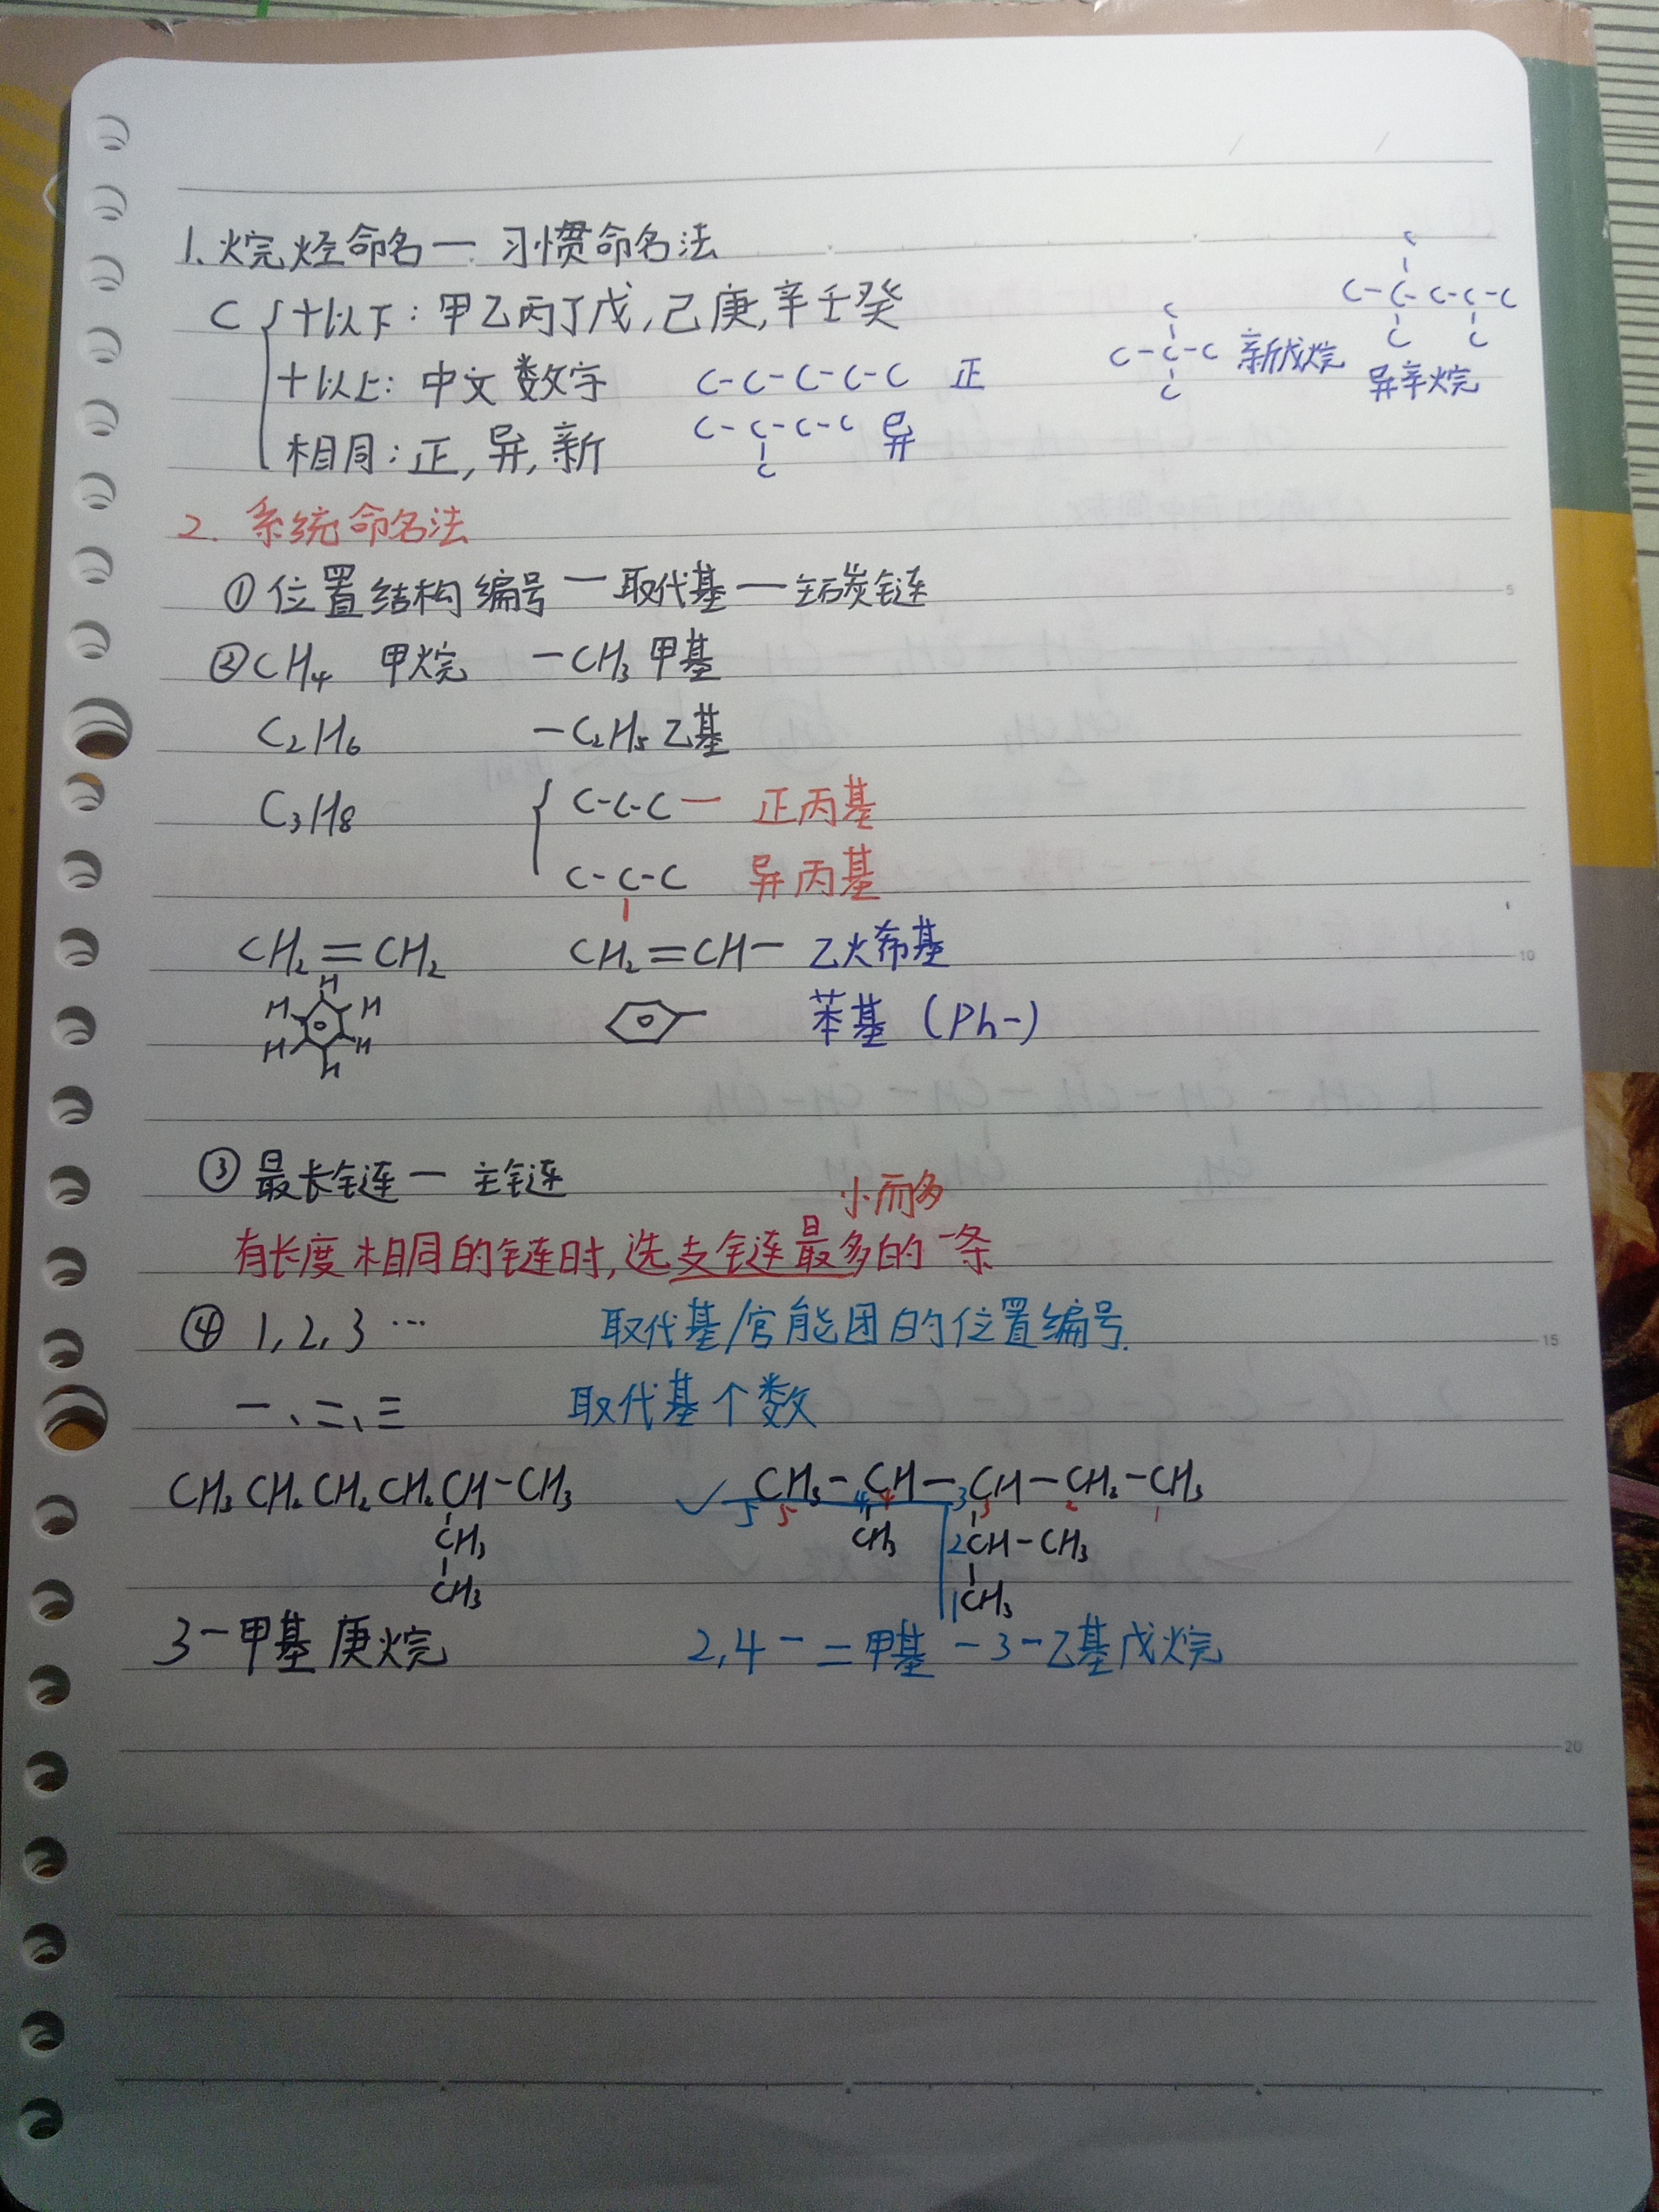 1. 烷烃命名一 习惯命名法
C { 十以下: 甲乙丙丁戊, 己庚, 辛壬癸
十以上: 中文数字
相同: 正, 异, 新
C-C-C-C-C 正
C-C-C-C 异
C
C
C-C-C 新戊烷
C
C
C-C-C-C-C
C C
异辛烷
2. 系统命名法
① 位置结构编号一取代基一主碳链
② CH4 甲烷 -CH3 甲基
C2H6 -C2H5 乙基
C3H8 { C-C-C- 正丙基
C-C-C 异丙基
CH2=CH2 CH2=CH- 乙烯基
H
H H
H H
H
苯基 (Ph-)
③ 最长链一 主链
小而多
有长度相同的链时, 选支链最多的一条
④ 1, 2, 3 … 取代基/官能团的位置编号.
一、二、三 取代基个数
CH3CH2CH2CH2CH-CH3
CH3
CH3
✓ CH3-CH-CH-CH2-CH3
5 5 4 4 3 3 2 1
CH3 2 CH-CH3
1 CH3
3-甲基庚烷 2,4-二甲基-3-乙基戊烷
5
10
15
20